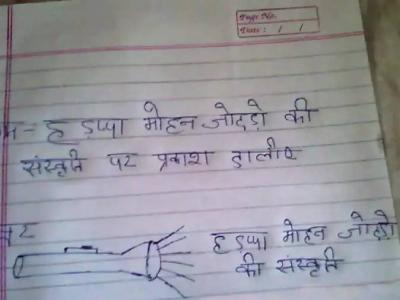 Page No.
Date: / /
हडप्पा मोहन जोदड़ो की
संस्कृति पर प्रकाश डालीए
हडप्पा मोहन जोदड़ो
की संस्कृति